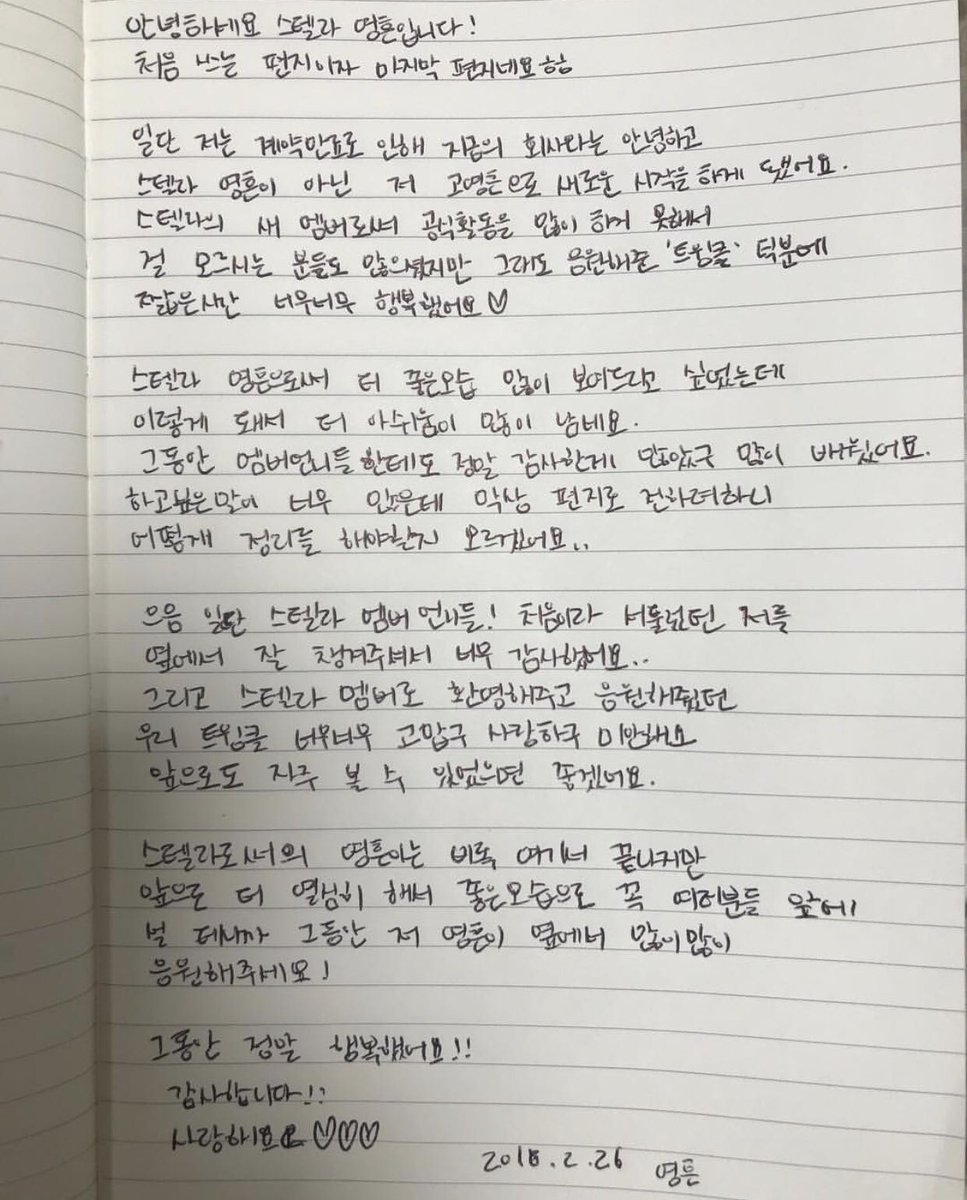 안녕하세요 스텔라 영흔입니다!
처음 쓰는 편지이자 마지막 편지네요ㅎㅎ
일단 저는 계약만료로 인해 지금의 회사와는 안녕하고
스텔라 영흔이 아닌 저 고영흔으로 새로운 시작을 하게 됐어요.
스텔라의 새 멤버로서 공식활동을 많이 하지 못해서
절 모르시는 분들도 많으셨지만 그래도 응원해준 '트윙클' 덕분에
짧은시간 너무너무 행복했어요♡
스텔라 영흔으로써 더 좋은모습 많이 보여드리고 싶었는데
이렇게 돼서 더 아쉬움이 많이 남네요.
그동안 멤버언니들한테도 정말 감사한게 많았구 많이 배웠어요.
하고싶은말이 너무 많은데 막상 편지로 전하려하니
어떻게 정리를 해야할지 모르겠어요..
으음 일단 스텔라 멤버 언니들! 처음이라 서툴렀던 저를
옆에서 잘 챙겨주셔서 너무 감사했어요..
그리고 스텔라 멤버로 환영해주고 응원해줬던
우리 트윙클 너무너무 고맙구 사랑하구 미안해요
앞으로도 자주 볼 수 있었으면 좋겠어요.
스텔라로써의 영흔이는 비록 여기서 끝나지만
앞으로 더 열심히 해서 좋은모습으로 꼭 여러분들 앞에
설 테니까 그동안 저 영흔이 옆에서 많이많이
응원해주세요!
그동안 정말 행복했어요!!
감사합니다!!
사랑해요 ♡♡♡
2018.2.26 영흔